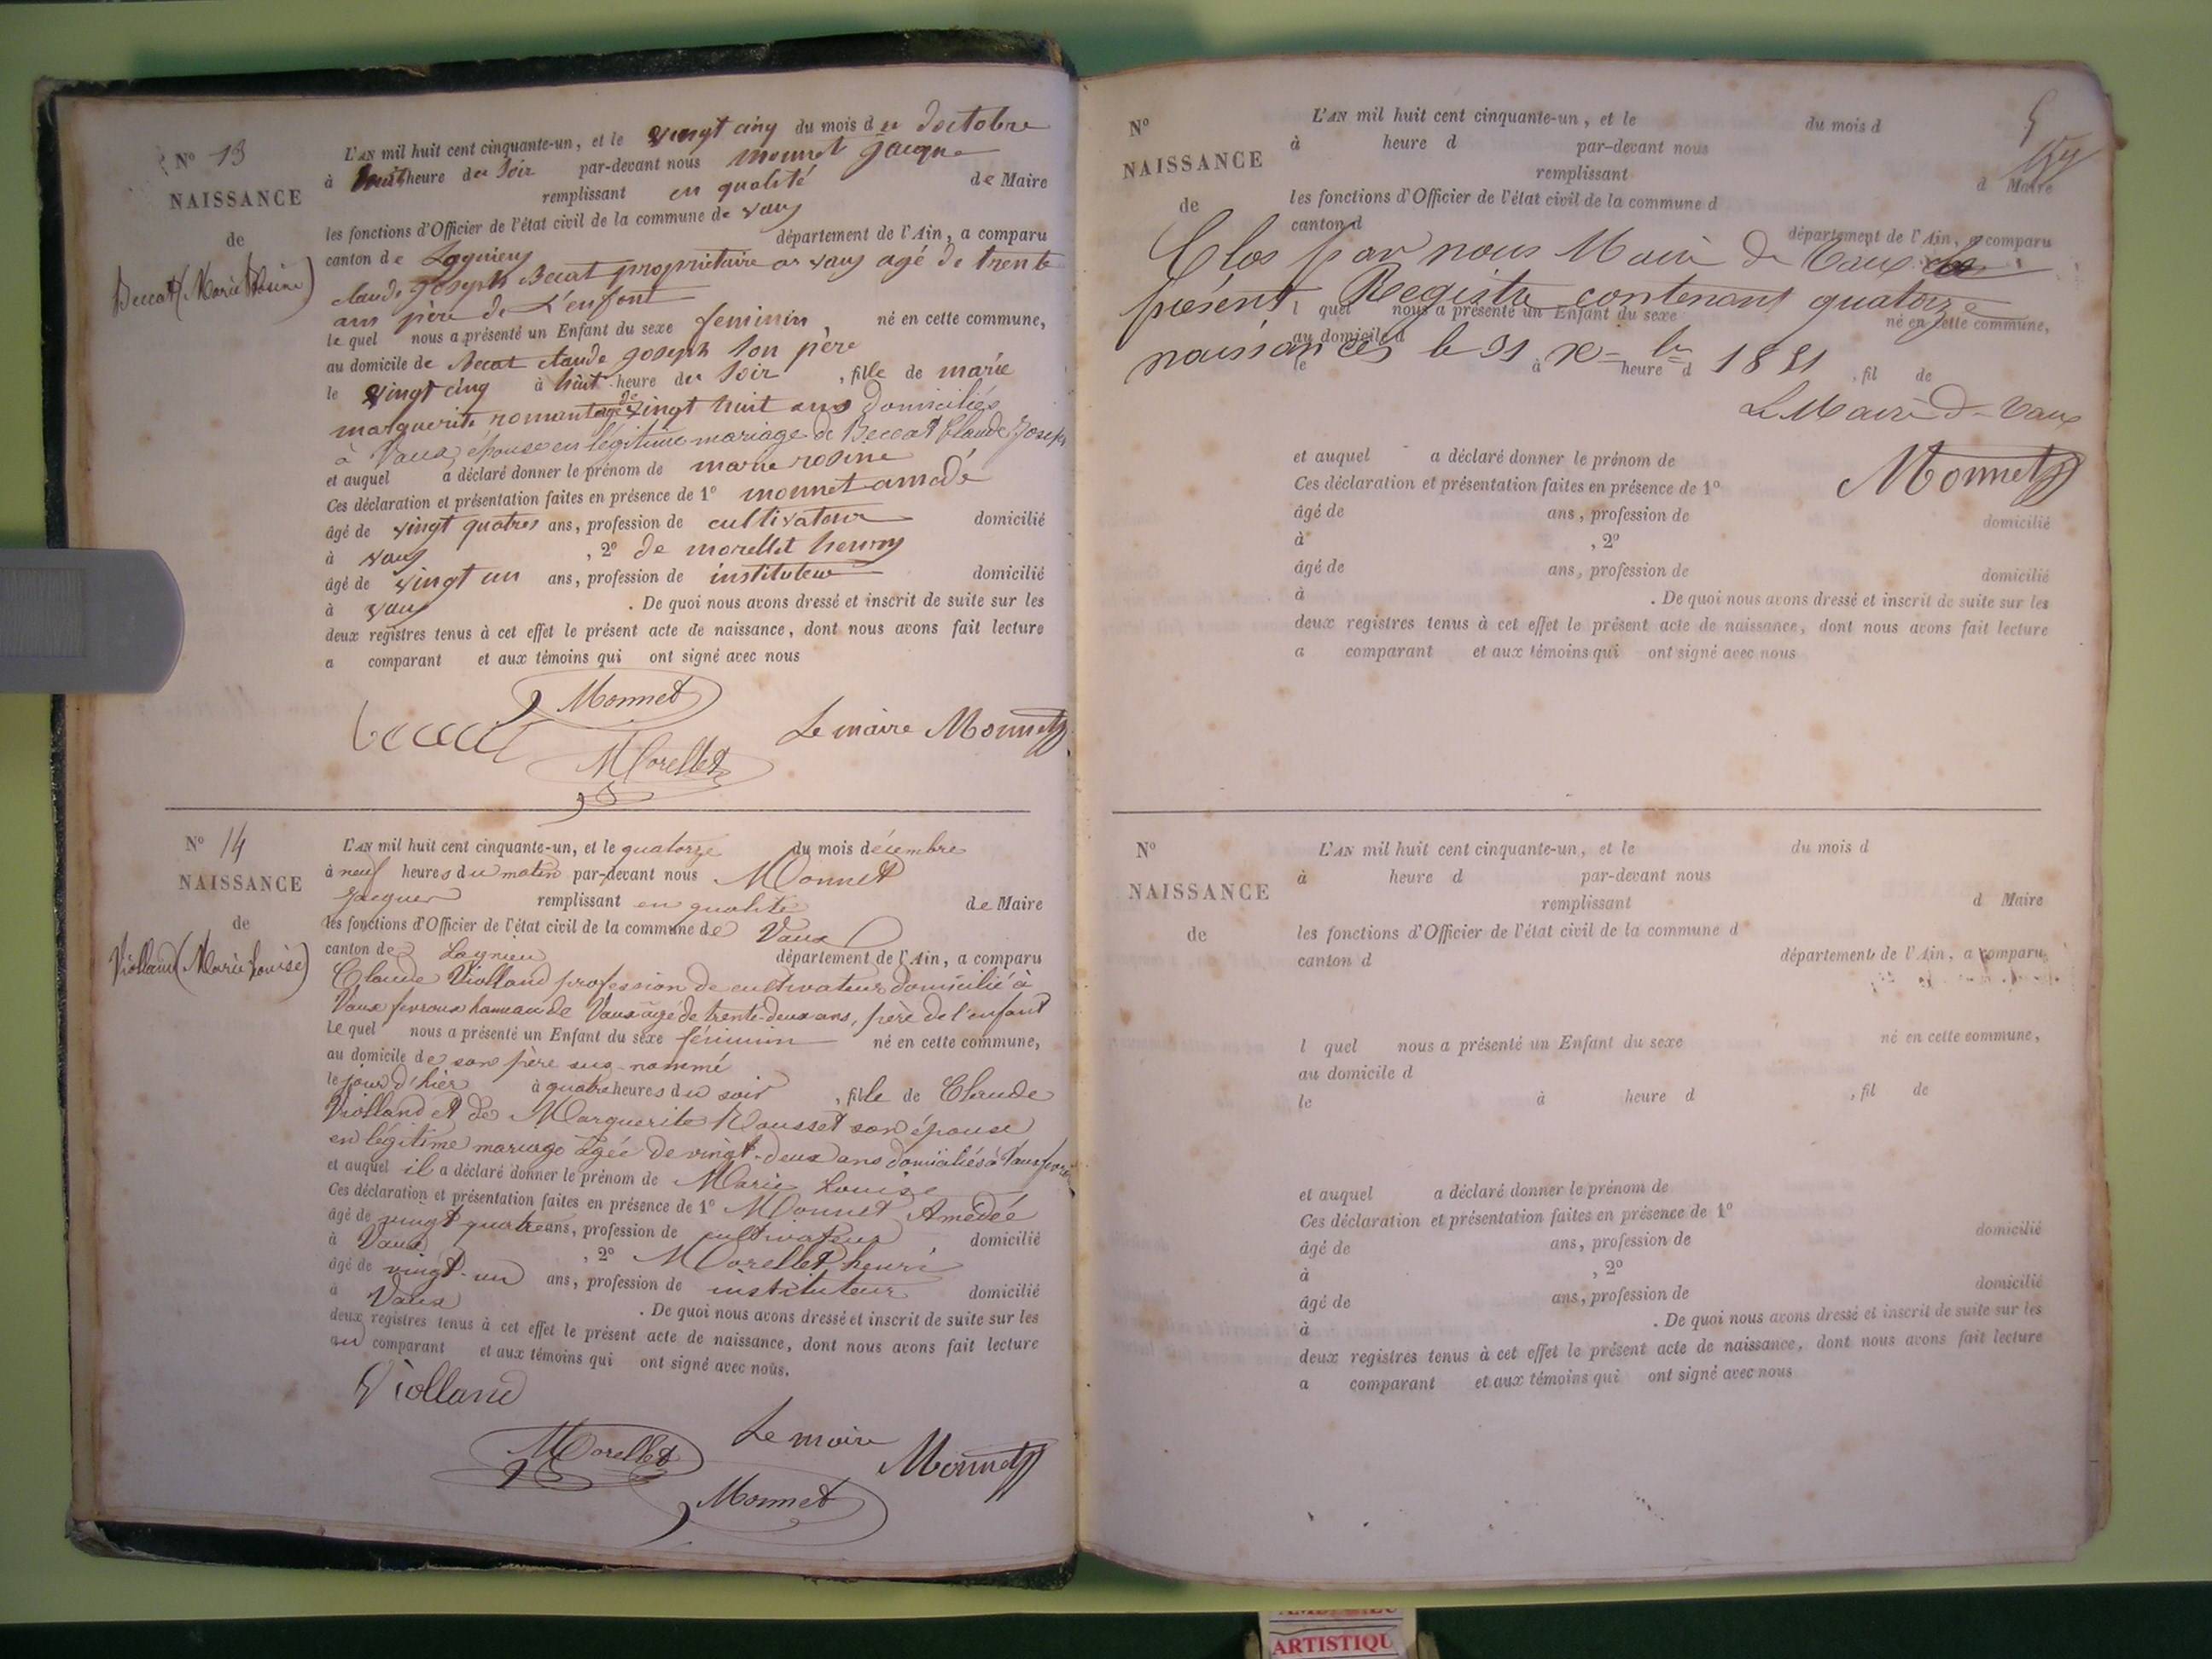 N° 13
NAISSANCE
de
Beccat (Marie Rosine)
L'AN mil huit cent cinquante-un, et le vingt cinq du mois du doctobre
à huit heure du soir par-devant nous monnet jacque
remplissant en qualité de Maire
les fonctions d'Officier de l'état civil de la commune de vaux
canton de Lagnieu département de l'Ain, a comparu
claude joseph Beccat propriétaire a vaux agé de trente
ans père de L'enfant
le quel nous a présenté un Enfant du sexe feminin, né en cette commune,
au domicile de Beccat claude joseph son père
le vingt cinq à huit heure du soir, fille de marie
marguerite romant agé de vingt huit ans domiciliés
à Vaux, épouse en légitime mariage de Beccat Claude Joseph
et auquel a déclaré donner le prénom de marie rosine
Ces déclaration et présentation faites en présence de 1° monnet amadé
âgé de vingt quatres ans, profession de cultivateur domicilié
à vaux, 2° de morellet henry
âgé de vingt un ans, profession de instituteur domicilié
à vaux. De quoi nous avons dressé et inscrit de suite sur les
deux registres tenus à cet effet le présent acte de naissance, dont nous avons fait lecture
a comparant et aux témoins qui ont signé avec nous
Monnet
Beccat Le maire Monnet
Morellet
N° 14
NAISSANCE
de
Violland (Marie Louise)
L'AN mil huit cent cinquante-un, et le quatorze du mois décembre
à neuf heures du matin par-devant nous Monnet
Jacques remplissant en qualité de Maire
les fonctions d'Officier de l'état civil de la commune de Vaux
canton de Lagnieu département de l'Ain, a comparu
Claude Violland profession de cultivateur domicilié à
Vaux fevroux hameau de Vaux âgé de trente-deux ans, père de l'enfant
Le quel nous a présenté un Enfant du sexe féminin né en cette commune,
au domicile de son père sus-nommé
le jour d'hier à quatre heures du soir, fille de Claude
Violland et de Marguerite Rousset son épouse
en légitime mariage âgée de vingt-deux ans domiciliés à Vaux fevroux
et auquel il a déclaré donner le prénom de Marie Louise
Ces déclaration et présentation faites en présence de 1° Monnet Amédée
âgé de vingt quatre ans, profession de cultivateur domicilié
à Vaux, 2° Morellet henri
âgé de vingt-un ans, profession de instituteur domicilié
à Vaux. De quoi nous avons dressé et inscrit de suite sur les
deux registres tenus à cet effet le présent acte de naissance, dont nous avons fait lecture
au comparant et aux témoins qui ont signé avec nous.
Violland
Morellet Le maire Monnet
Monnet
N°
NAISSANCE
de
L'AN mil huit cent cinquante-un, et le du mois d
à heure d par-devant nous
remplissant d Maire
les fonctions d'Officier de l'état civil de la commune d
canton d département de l'Ain, a comparu
Clos par nous Maire de Vaux
présent Registre contenant quatorze
l quel nous a présenté un Enfant du sexe né en cette commune,
au domicile d
naissances le 31 Xbre 1851
le à heure d, fil de
Le Maire de Vaux
Monnet
et auquel a déclaré donner le prénom de
Ces déclaration et présentation faites en présence de 1°
âgé de ans, profession de domicilié
à, 2°
âgé de ans, profession de domicilié
à. De quoi nous avons dressé et inscrit de suite sur les
deux registres tenus à cet effet le présent acte de naissance, dont nous avons fait lecture
a comparant et aux témoins qui ont signé avec nous
N°
NAISSANCE
de
L'AN mil huit cent cinquante-un, et le du mois d
à heure d par-devant nous
remplissant d Maire
les fonctions d'Officier de l'état civil de la commune d
canton d département de l'Ain, a comparu
l quel nous a présenté un Enfant du sexe né en cette commune,
au domicile d
le à heure d, fil de
et auquel a déclaré donner le prénom de
Ces déclaration et présentation faites en présence de 1°
âgé de ans, profession de domicilié
à, 2°
âgé de ans, profession de domicilié
à. De quoi nous avons dressé et inscrit de suite sur les
deux registres tenus à cet effet le présent acte de naissance, dont nous avons fait lecture
a comparant et aux témoins qui ont signé avec nous
ARTISTIQU